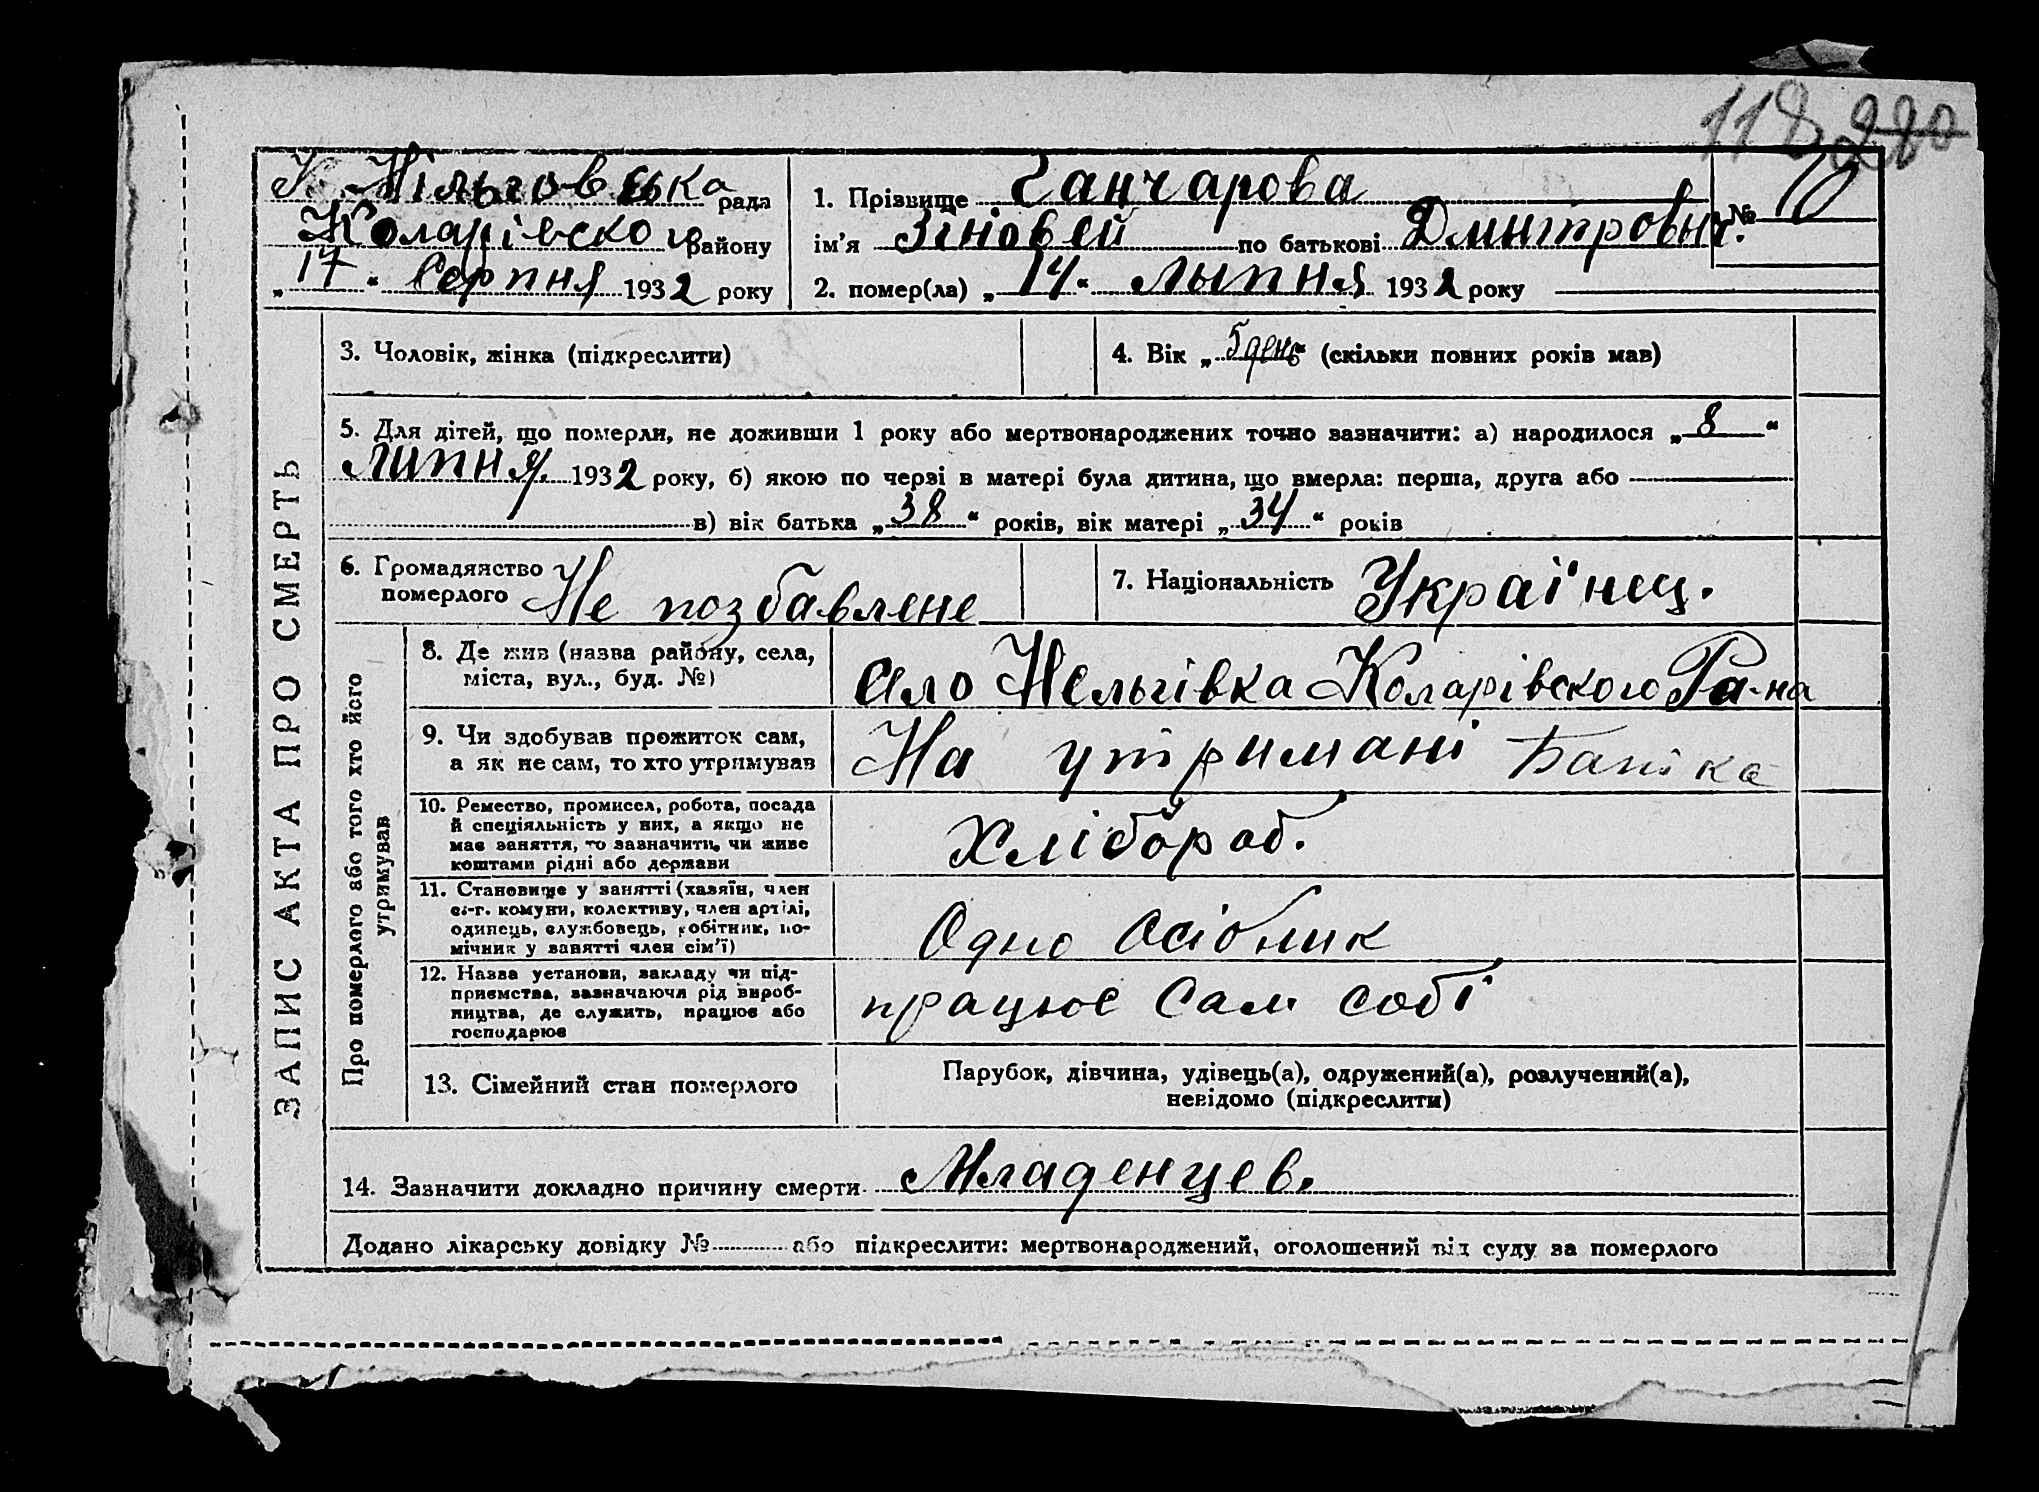 118 220
Нільговська рада
Коларівского району
„17“ Серпня 1932 року
1. Прізвище Ганчарова
ім’я Зіновей по батькові Дмитрович.
№ 10
2. помер(ла) „14“ лыпня 1932 року
ЗАПИС АКТА ПРО СМЕРТЬ
3. Чоловік, жінка (підкреслити)
4. Вік „5 день“ (скільки повних років мав)
5. Для дітей, що померли, не доживши 1 року або мертвонароджених точно зазначити: а) народилося „8“
липня 1932 року, б) якою по черзі в матері була дитина, що вмерла: перша, друга або
в) вік батька „38“ років, вік матері „34“ років
6. Громадянство
померлого Не позбавлене
7. Національність Украі'нец.
Про померлого або того хто його
утримував
8. Де жив (назва району, села,
міста, вул., буд. №)
село Нельгівка Коларівского Ра-на
9. Чи здобував прожиток сам,
а як не сам, то хто утримував
На утримані Батька
10. Ремество, промисел, робота, посада
й спеціяльність у них, а якщо не
має заняття, то зазначити, чи живе
коштами рідні або держави
Хлібороб.
11. Становище у занятті (хазяїн, член
с.-г. комуни, колективу, член артілі,
одинець, службовець, робітник, по-
мічник у занятті член сім’ї)
Одно осібник
12. Назва установи, закладу чи під-
приємства, зазначаючи рід вироб-
ництва, де служить, працює або
господарює
працює Сам собі
13. Сімейний стан померлого
Парубок, дівчина, удівець(а), одружений(а), розлучений(а),
невідомо (підкреслити)
14. Зазначити докладно причину смерти Младенцев.
Додано лікарську довідку № або підкреслити: мертвонароджений, оголошений від суду за померлого